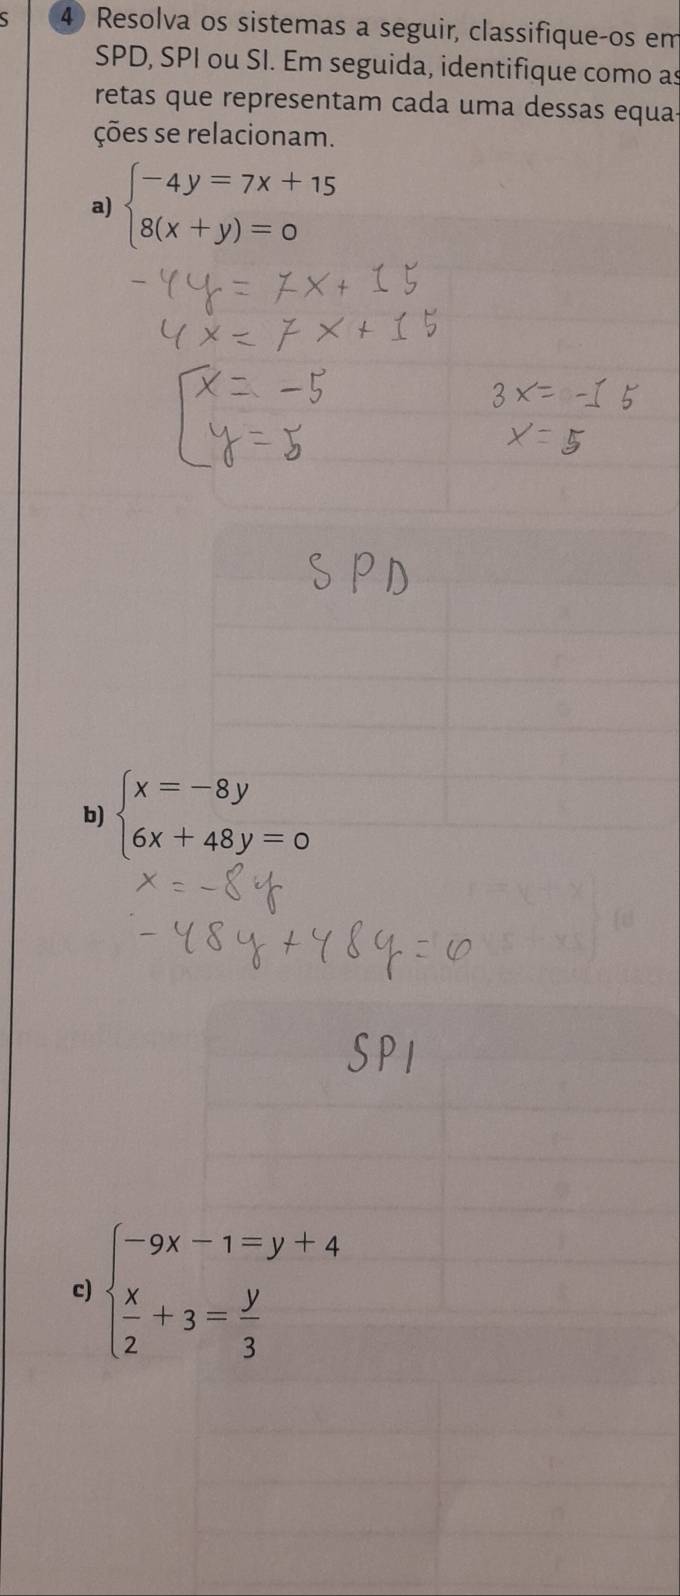 s
4 Resolva os sistemas a seguir, classifique-os em
SPD, SPI ou SI. Em seguida, identifique como as
retas que representam cada uma dessas equa-
ções se relacionam.
a) { -4y = 7x + 15
8(x + y) = 0
-4y = 7x + 15
4x = 7x + 15
x = -5
3x = -15
y = 5
x = 5
SPD
b) { x = -8y
6x + 48y = 0
x = -8y
-48y + 48y = 0
SPI
c) { -9x - 1 = y + 4
x/2 + 3 = y/3